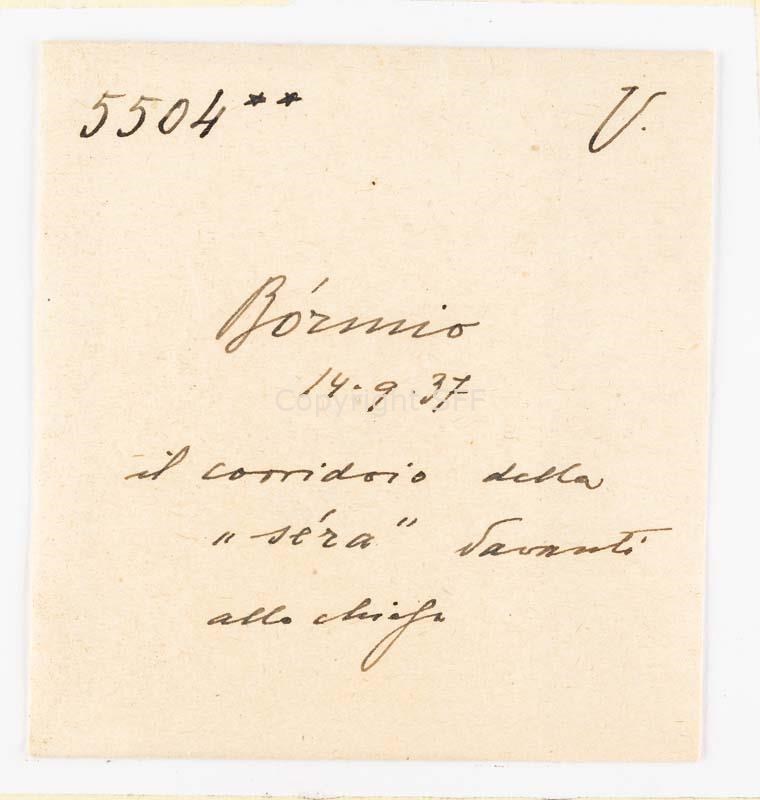 5504** V.
Bórmio
14.9.37
Copyright SFF
il corridoio della
„ séra " davanti
alla chiesa